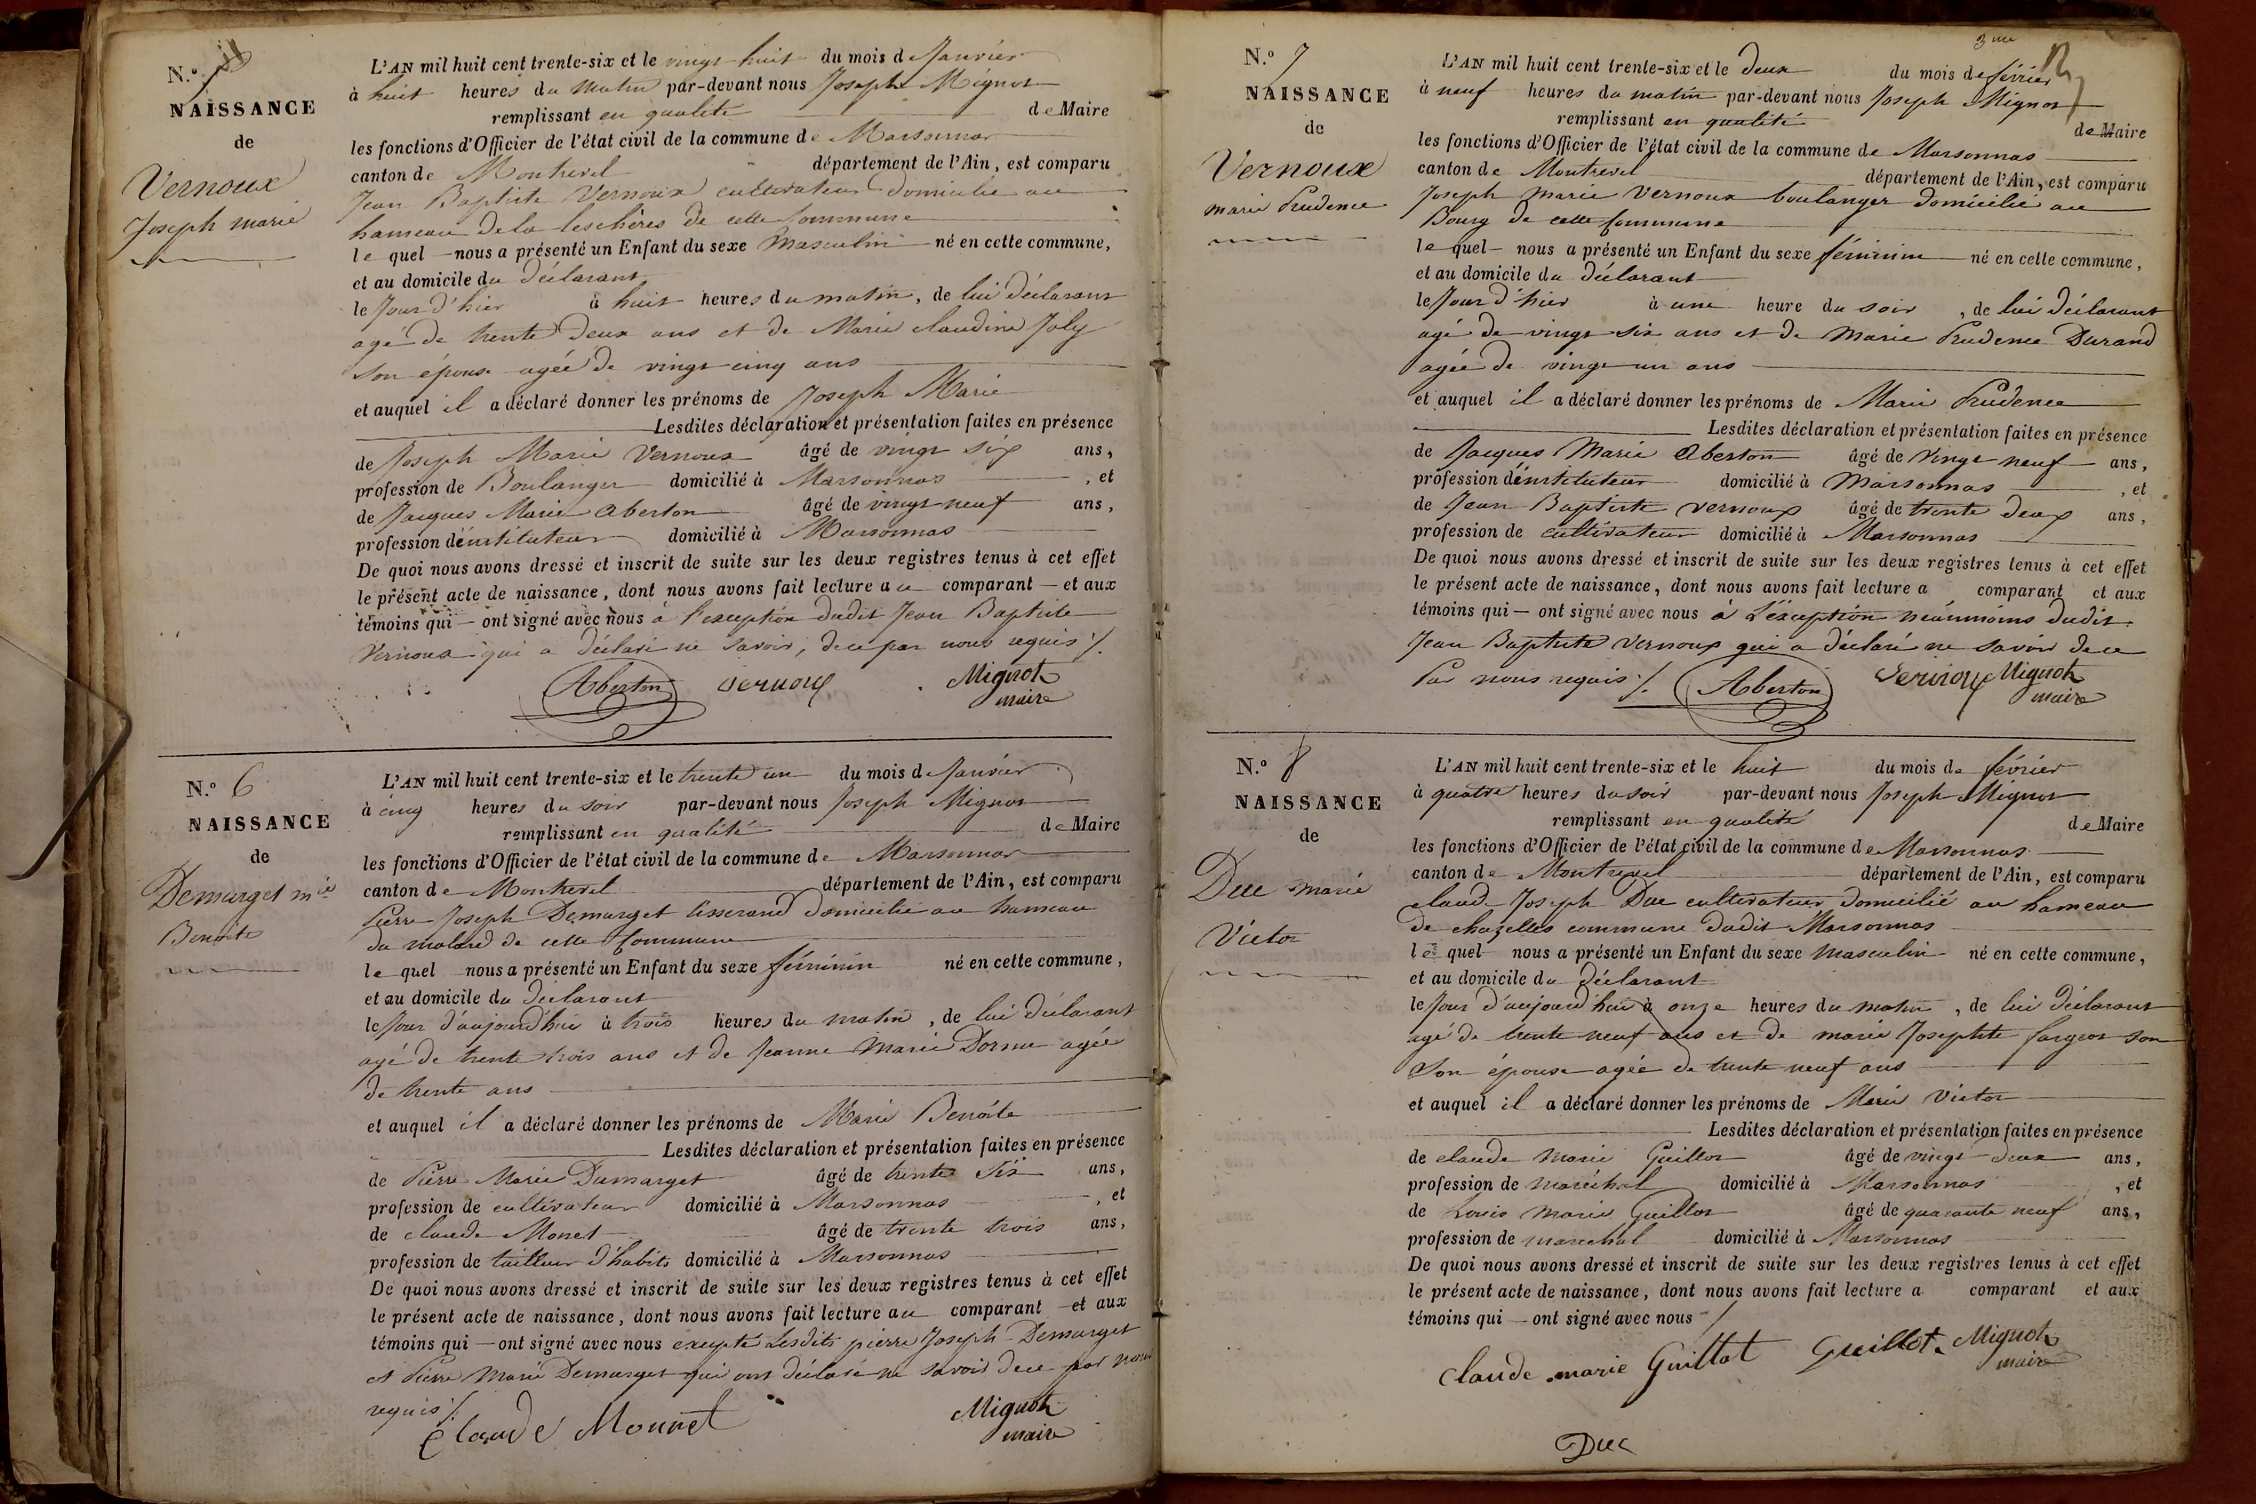 N.º
NAISSANCE
de
Vernoux
Joseph marie
L'AN mil huit cent trente-six et le vingt huit du mois de Janvier
à huit heures du matin par-devant nous Joseph Mignot
remplissant en qualité de Maire
les fonctions d'Officier de l'état civil de la commune de Marsonnas
canton de Montrevel département de l'Ain, est comparu
Jean Baptiste Vernoux cultivateur domicilié au
hameau de la leschères de cette Commune
le quel nous a présenté un Enfant du sexe Masculin né en cette commune,
et au domicile du déclarant
le Jour d'hier à huit heures du matin, de lui déclarant
agé de trente deux ans et de Marie claudine Joly
son épouse agée de vingt cinq ans
et auquel il a déclaré donner les prénoms de Joseph Marie
Lesdites déclaration et présentation faites en présence
de Joseph Marie Vernoux âgé de vingt six ans,
profession de Boulanger domicilié à Marsonnas, et
de Jacques Marie Aberton âgé de vingt neuf ans,
profession d'énstituteur domicilié à Marsonnas
De quoi nous avons dressé et inscrit de suite sur les deux registres tenus à cet effet
le présent acte de naissance, dont nous avons fait lecture au comparant et aux
témoins qui ont signé avec nous à l'exception dudit Jean Baptiste
Vernoux qui a déclaré ne savoir, de ce par nous requis ./.
Aberton vernoux Mignot
maire
N.º 6
NAISSANCE
de
Demurget mie
Benoite
L'AN mil huit cent trente-six et le trente un du mois de Janvier
à cinq heures du soir par-devant nous Joseph Mignot
remplissant en qualité de Maire
les fonctions d'Officier de l'état civil de la commune de Marsonnas
canton de Montrevel département de l'Ain, est comparu
Pierre Joseph Demurget tisserand domicilié au hameau
du molard de cette Commune
le quel nous a présenté un Enfant du sexe féminin né en cette commune,
et au domicile du déclarant
le Jour d'aujourd'hui à trois heures du matin, de lui déclarant
agé de trente trois ans et de Jeanne Marie agée
de trente ans
et auquel il a déclaré donner les prénoms de Marie Benoite
Lesdites déclaration et présentation faites en présence
de Pierre Marie Damurget âgé de trente six ans,
profession de cultivateur domicilié à Marsonnas, et
de claude Monet âgé de trente trois ans,
profession de tailleur d'habits domicilié à Marsonnas
De quoi nous avons dressé et inscrit de suite sur les deux registres tenus à cet effet
le présent acte de naissance, dont nous avons fait lecture au comparant et aux
témoins qui ont signé avec nous excepté Lesdits pierre Joseph Demurget
et Pierre Marie Demurget qui ont déclaré ne savoir de ce par nous
requis ./.
Claude Monnet Mignot
maire
3me
N.º 7
NAISSANCE
de
Vernoux
marie Prudence
L'AN mil huit cent trente-six et le deux du mois de février
à neuf heures du matin par-devant nous Joseph Mignot
remplissant en qualité de Maire
les fonctions d'Officier de l'état civil de la commune de Marsonnas
canton de Montrevel département de l'Ain, est comparu
Joseph Marie Vernoux boulanger domicilié au
Bourg de cette Commune
le quel nous a présenté un Enfant du sexe féminin né en cette commune,
et au domicile du déclarant
le Jour d'hier à une heure du soir, de lui déclarant
agé de vingt six ans et de Marie Prudence Durand
agée de vingt un ans
et auquel il a déclaré donner les prénoms de Marie Prudence
Lesdites déclaration et présentation faites en présence
de Jacques Marie Aberton âgé de Vingt neuf ans,
profession d'énstituteur domicilié à Marsonnas, et
de Jean Baptiste Vernoux âgé de trente deux ans,
profession de cultivateur domicilié à Marsonnas
De quoi nous avons dressé et inscrit de suite sur les deux registres tenus à cet effet
le présent acte de naissance, dont nous avons fait lecture a comparant et aux
témoins qui ont signé avec nous à L'éxception néanmoins dudit
Jean Baptiste Vernoux qui a déclaré ne savoir de ce
Par nous requis ./. Aberton vernoux Mignot
maire
N.º 8
NAISSANCE
de
Duc marie
Victor
L'AN mil huit cent trente-six et le huit du mois de février
à quatre heures du soir par-devant nous Joseph Mignot
remplissant en qualité de Maire
les fonctions d'Officier de l'état civil de la commune de Marsonnas
canton de Montrevel département de l'Ain, est comparu
claude Joseph Duc cultivateur domicilié au hameau
de chazelles commune dudit Marsonnas
le quel nous a présenté un Enfant du sexe Masculin né en cette commune,
et au domicile du déclarant
le Jour d'aujourd'hui à onze heures du matin, de lui déclarant
agé de trente neuf ans et de marie Josephte fargeot son
Son épouse agée de trente neuf ans
et auquel il a déclaré donner les prénoms de Marie Victor
Lesdites déclaration et présentation faites en présence
de claude Marie Guillot âgé de vingt deux ans,
profession de maréchal domicilié à Marsonnas, et
de Louis Marie Guillot âgé de quarante neuf ans,
profession de marechal domicilié à Marsonnas
De quoi nous avons dressé et inscrit de suite sur les deux registres tenus à cet effet
le présent acte de naissance, dont nous avons fait lecture a comparant et aux
témoins qui ont signé avec nous ./
claude marie Guillot Guillot Mignot
maire
Duc